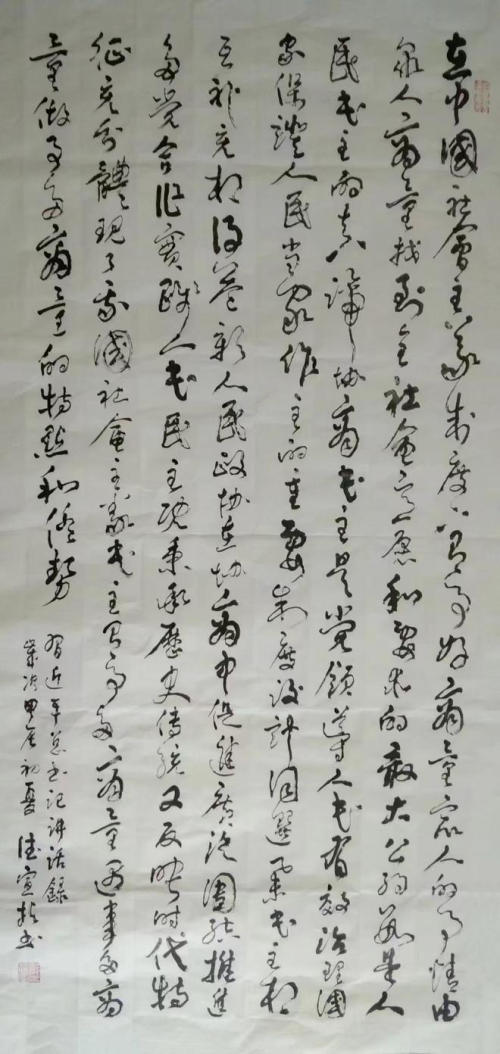 在中国社会主义制度下有事好商量众人的事情由
众人商量找到全社会意愿和要求的最大公约数是人
民民主的真谛协商民主是党领导人民有效治理国
家保证人民当家作主的重要制度设计同选举民主相
互补充相得益彰人民政协在协商中促进广泛团结推进
多党合作实践人民民主既秉承历史传统又反映时代特
征充分體现了我國社會主義民主有事多商量遇事多商
量做事多商量的特點和優勢
習近平总书记讲话録
甲辰初夏